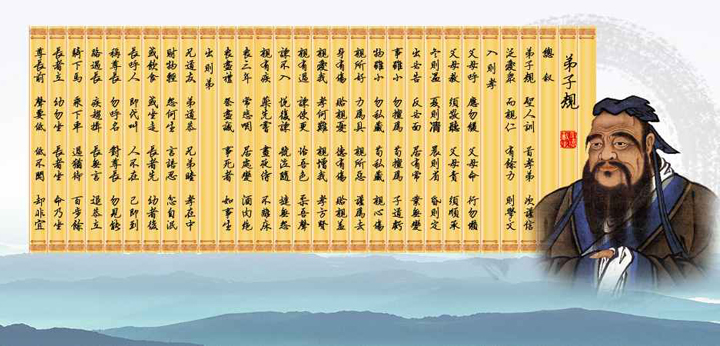 弟子規
總 叙
弟子規 聖人訓 首孝弟 次謹信
泛愛衆 而親仁 有餘力 則學文
入則孝
父母呼 應勿緩 父母命 行勿懶
父母教 須敬聽 父母責 須順承
冬則溫 夏則凊 晨則省 昏則定
出必告 反必面 居有常 業無變
事雖小 勿擅爲 苟擅爲 子道虧
物雖小 勿私藏 苟私藏 親心傷
親所好 力爲具 親所惡 謹爲去
身有傷 貽親憂 德有傷 貽親羞
親愛我 孝何難 親憎我 孝方賢
親有過 諫使更 怡吾色 柔吾聲
諫不入 悅復諫 號泣隨 撻無怨
親有疾 藥先嘗 晝夜侍 不離床
喪三年 常悲咽 居處變 酒肉絕
喪盡禮 祭盡誠 事死者 如事生
出則弟
兄道友 弟道恭 兄弟睦 孝在中
財物輕 怨何生 言語忍 忿自泯
或飲食 或坐走 長者先 幼者後
長呼人 即代叫 人不在 己即到
稱尊長 勿呼名 對尊長 勿見能
路遇長 疾趨揖 長無言 退恭立
騎下馬 乘下車 過猶待 百步餘
長者立 幼勿坐 長者坐 命乃坐
尊長前 聲要低 低不聞 却非宜